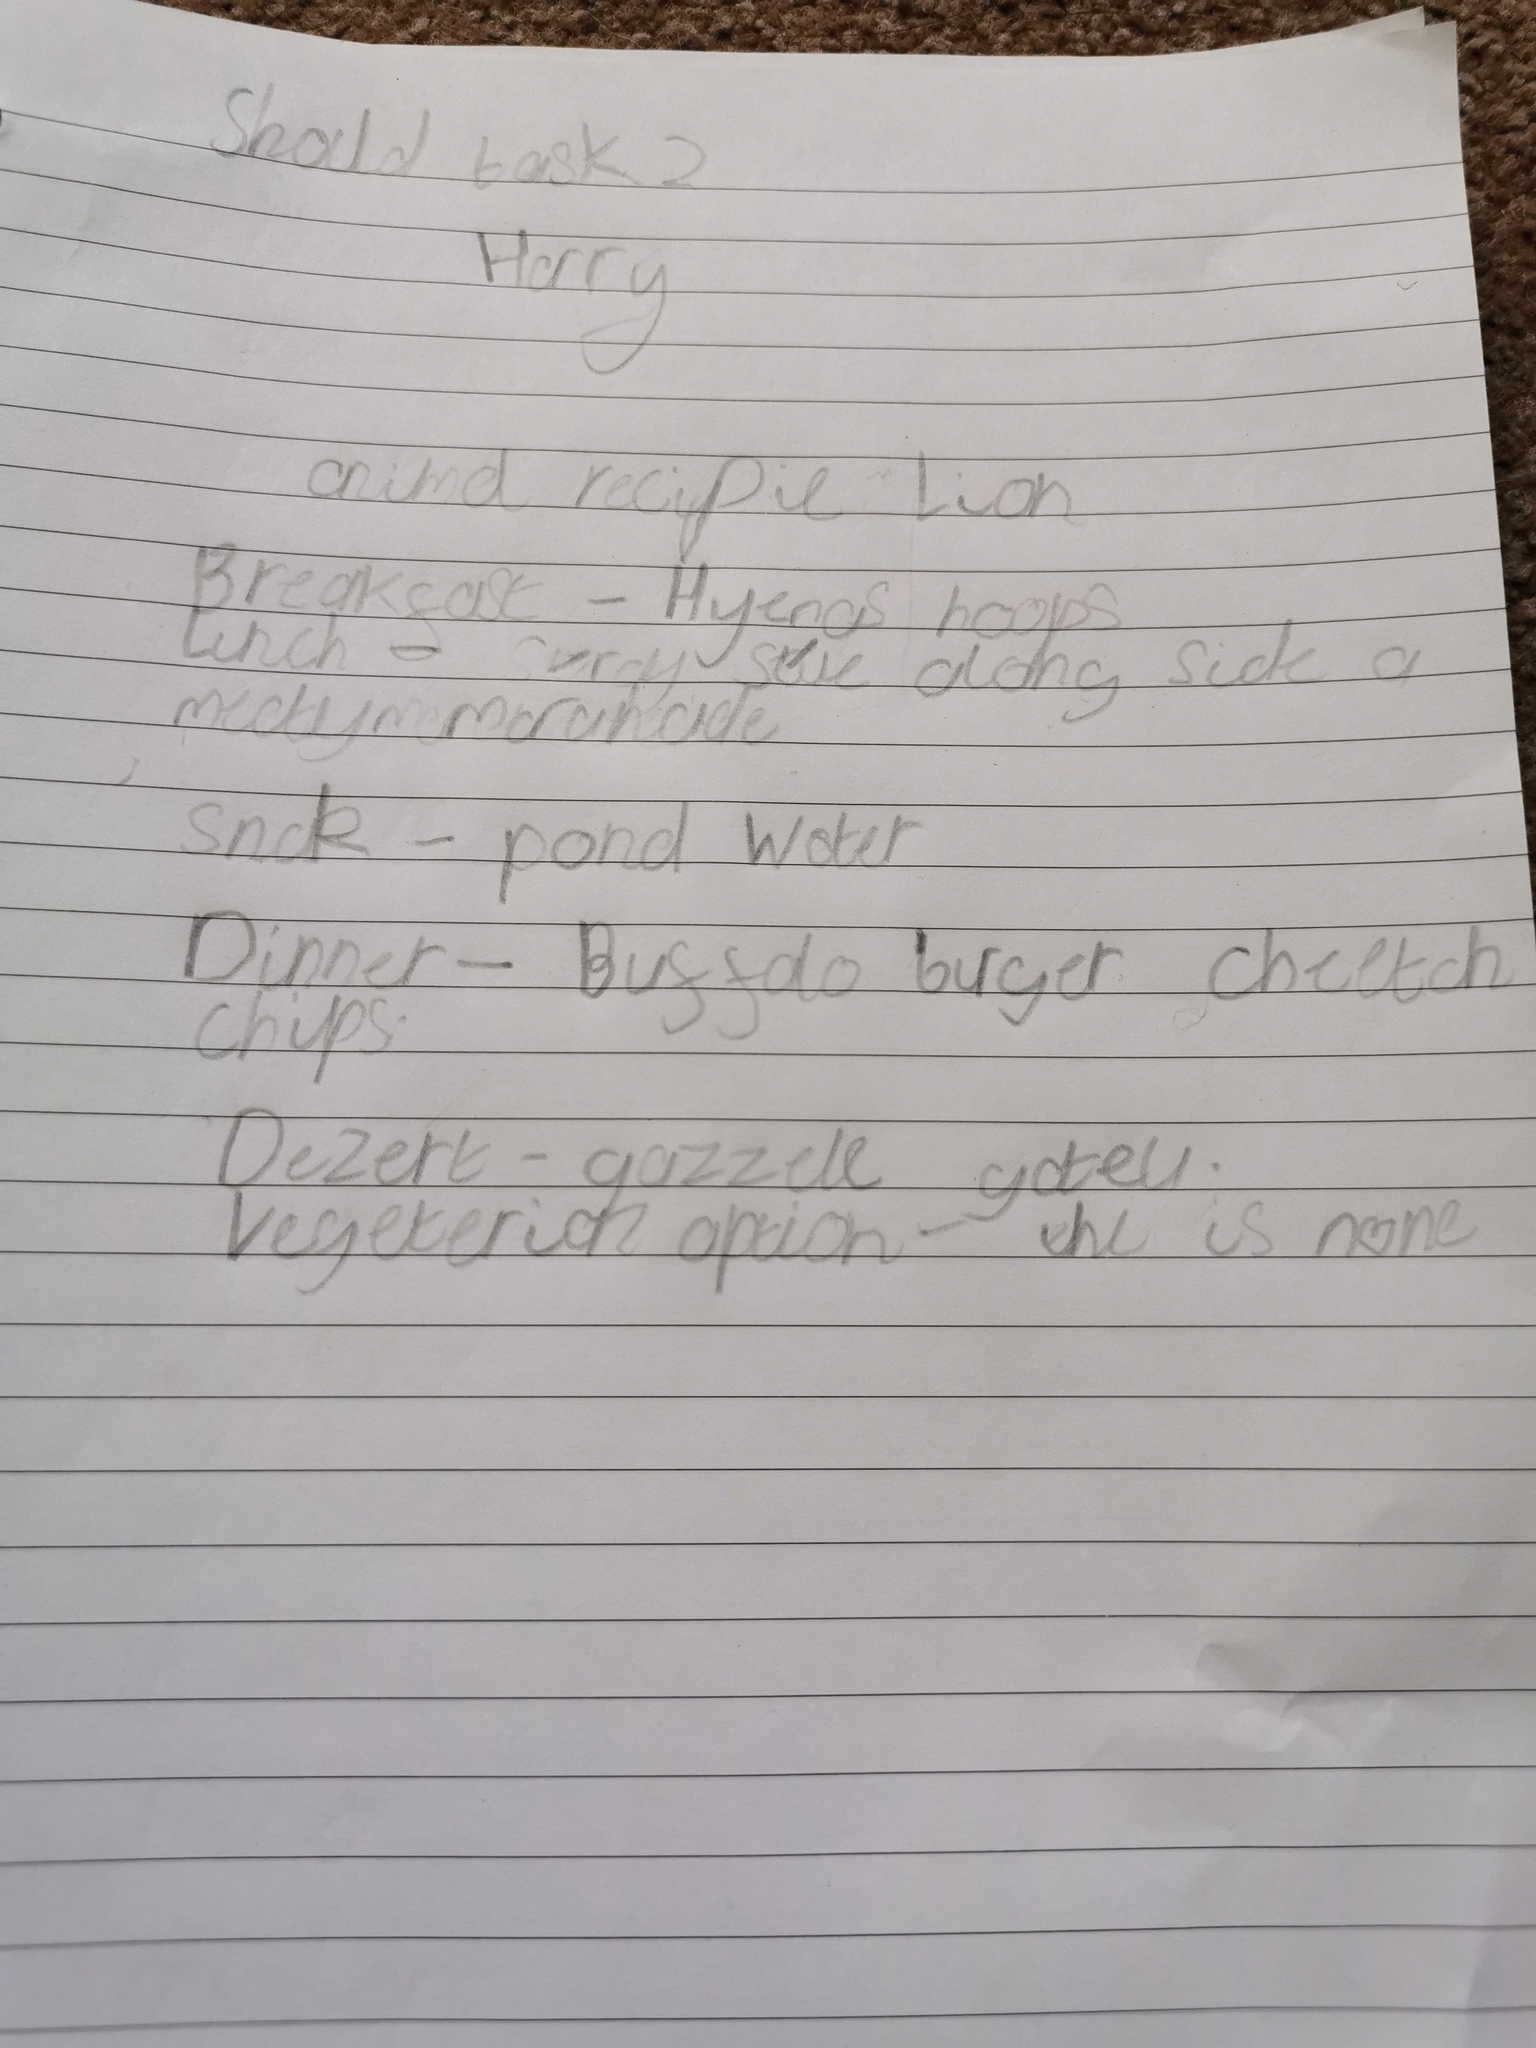 Should task 2
Harry
animal recipie Lion
Breakfast - Hyenas hoops
Lunch - along side a
Snak - pond Water
Dinner - Buffalo burger cheetah
chips.
Dezert - gazzelle gateu.
Vegeterian option - is none